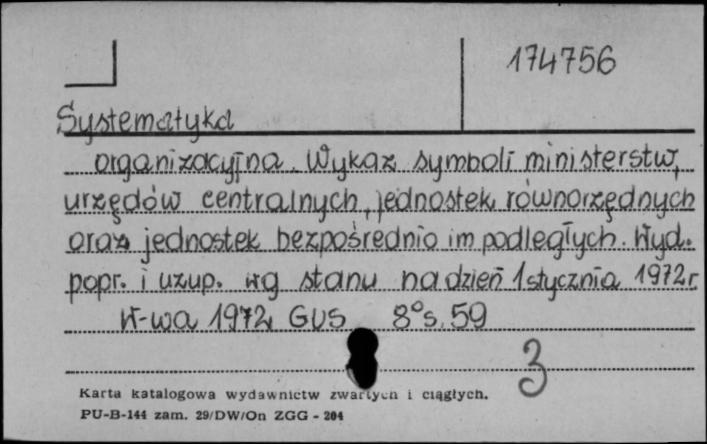 174756
Systematyka
organizacyjna. Wykaz symboli ministerstw,
urzędów centralnych, jednostek równorzędnych
oraz jednostek bezpośrednio im podległych. Wyd.
popr. i uzup. wg stanu na dzień 1 stycznia 1972 r
W-wa 1972 GUS 8° s. 59
3
Karta katalogowa wydawnictw zwartych i ciągłych.
PU-B-144 zam. 29/DW/On ZGG - 204